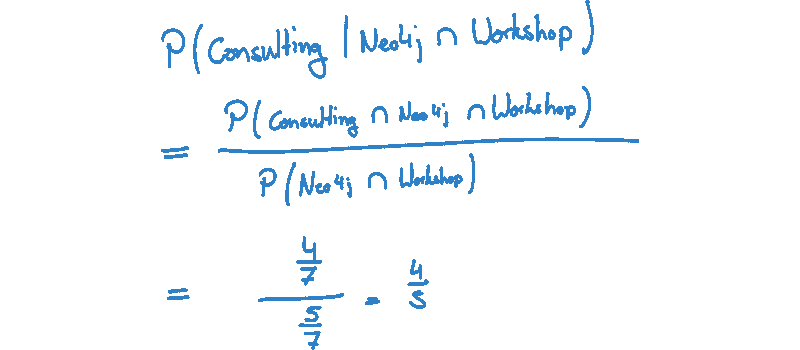 P(Consulting | Neo4j ∩ Workshop)
= P(Consulting ∩ Neo4j ∩ Workshop)
P(Neo4j ∩ Workshop)
= 4/7
5/7
= 4/5